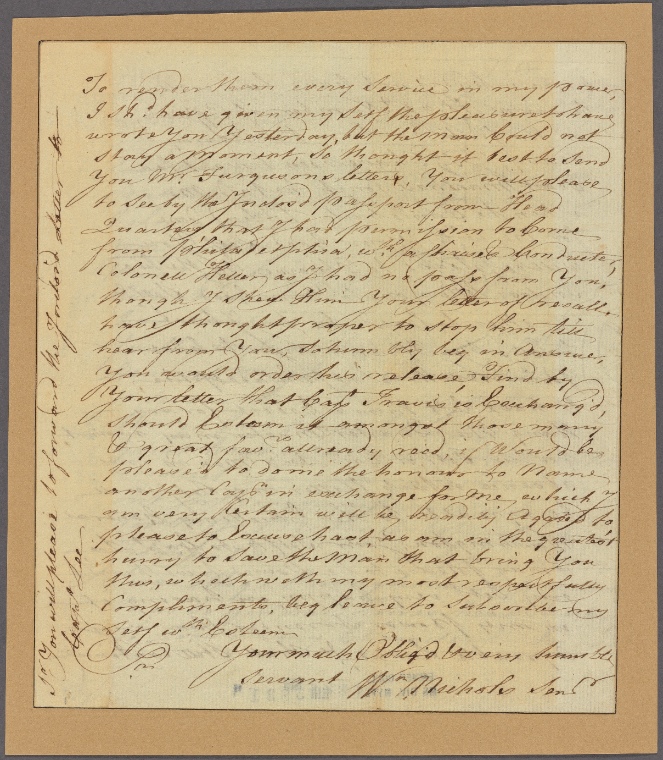 To render them every Service in my power,
I Shd. have given my Self the pleasure to have
wrote You Yesterday, but the Man Could not
stay a Moment, So thought it best to Send
You Mr. Furgusons letters, You will please
to See by the Inclosd passport from Head
Quarters that I had permission to Come
from Philadelphia, wth. a
Colonell Heller, as I had no pass from You,
though I Shew Him Your letter of recall,
have thought proper to Stop him till
hear from You, So humbly beg in Answer,
You would order his release. I find by
Your letter that Capt. Travis is Exchang'd,
should Esteem it amongst those many
& great favrs. allready recd, if Would be
pleased to do me the honour to Name
another Captn in exchange for me, which I
am very Certain will be readily agreed to
please to Excuse hast, as am in the greatest
hurry to Save the Man that bring You
this, which with my most respectfully
Compliments, beg leave to Subscribe my
Self wth. Esteem
Sir
Your much Oblig'd & very humble
Servant Wm. Nichols Senr
Sr. You will please to forward the Inclos'd Letter to
Captn. Lee